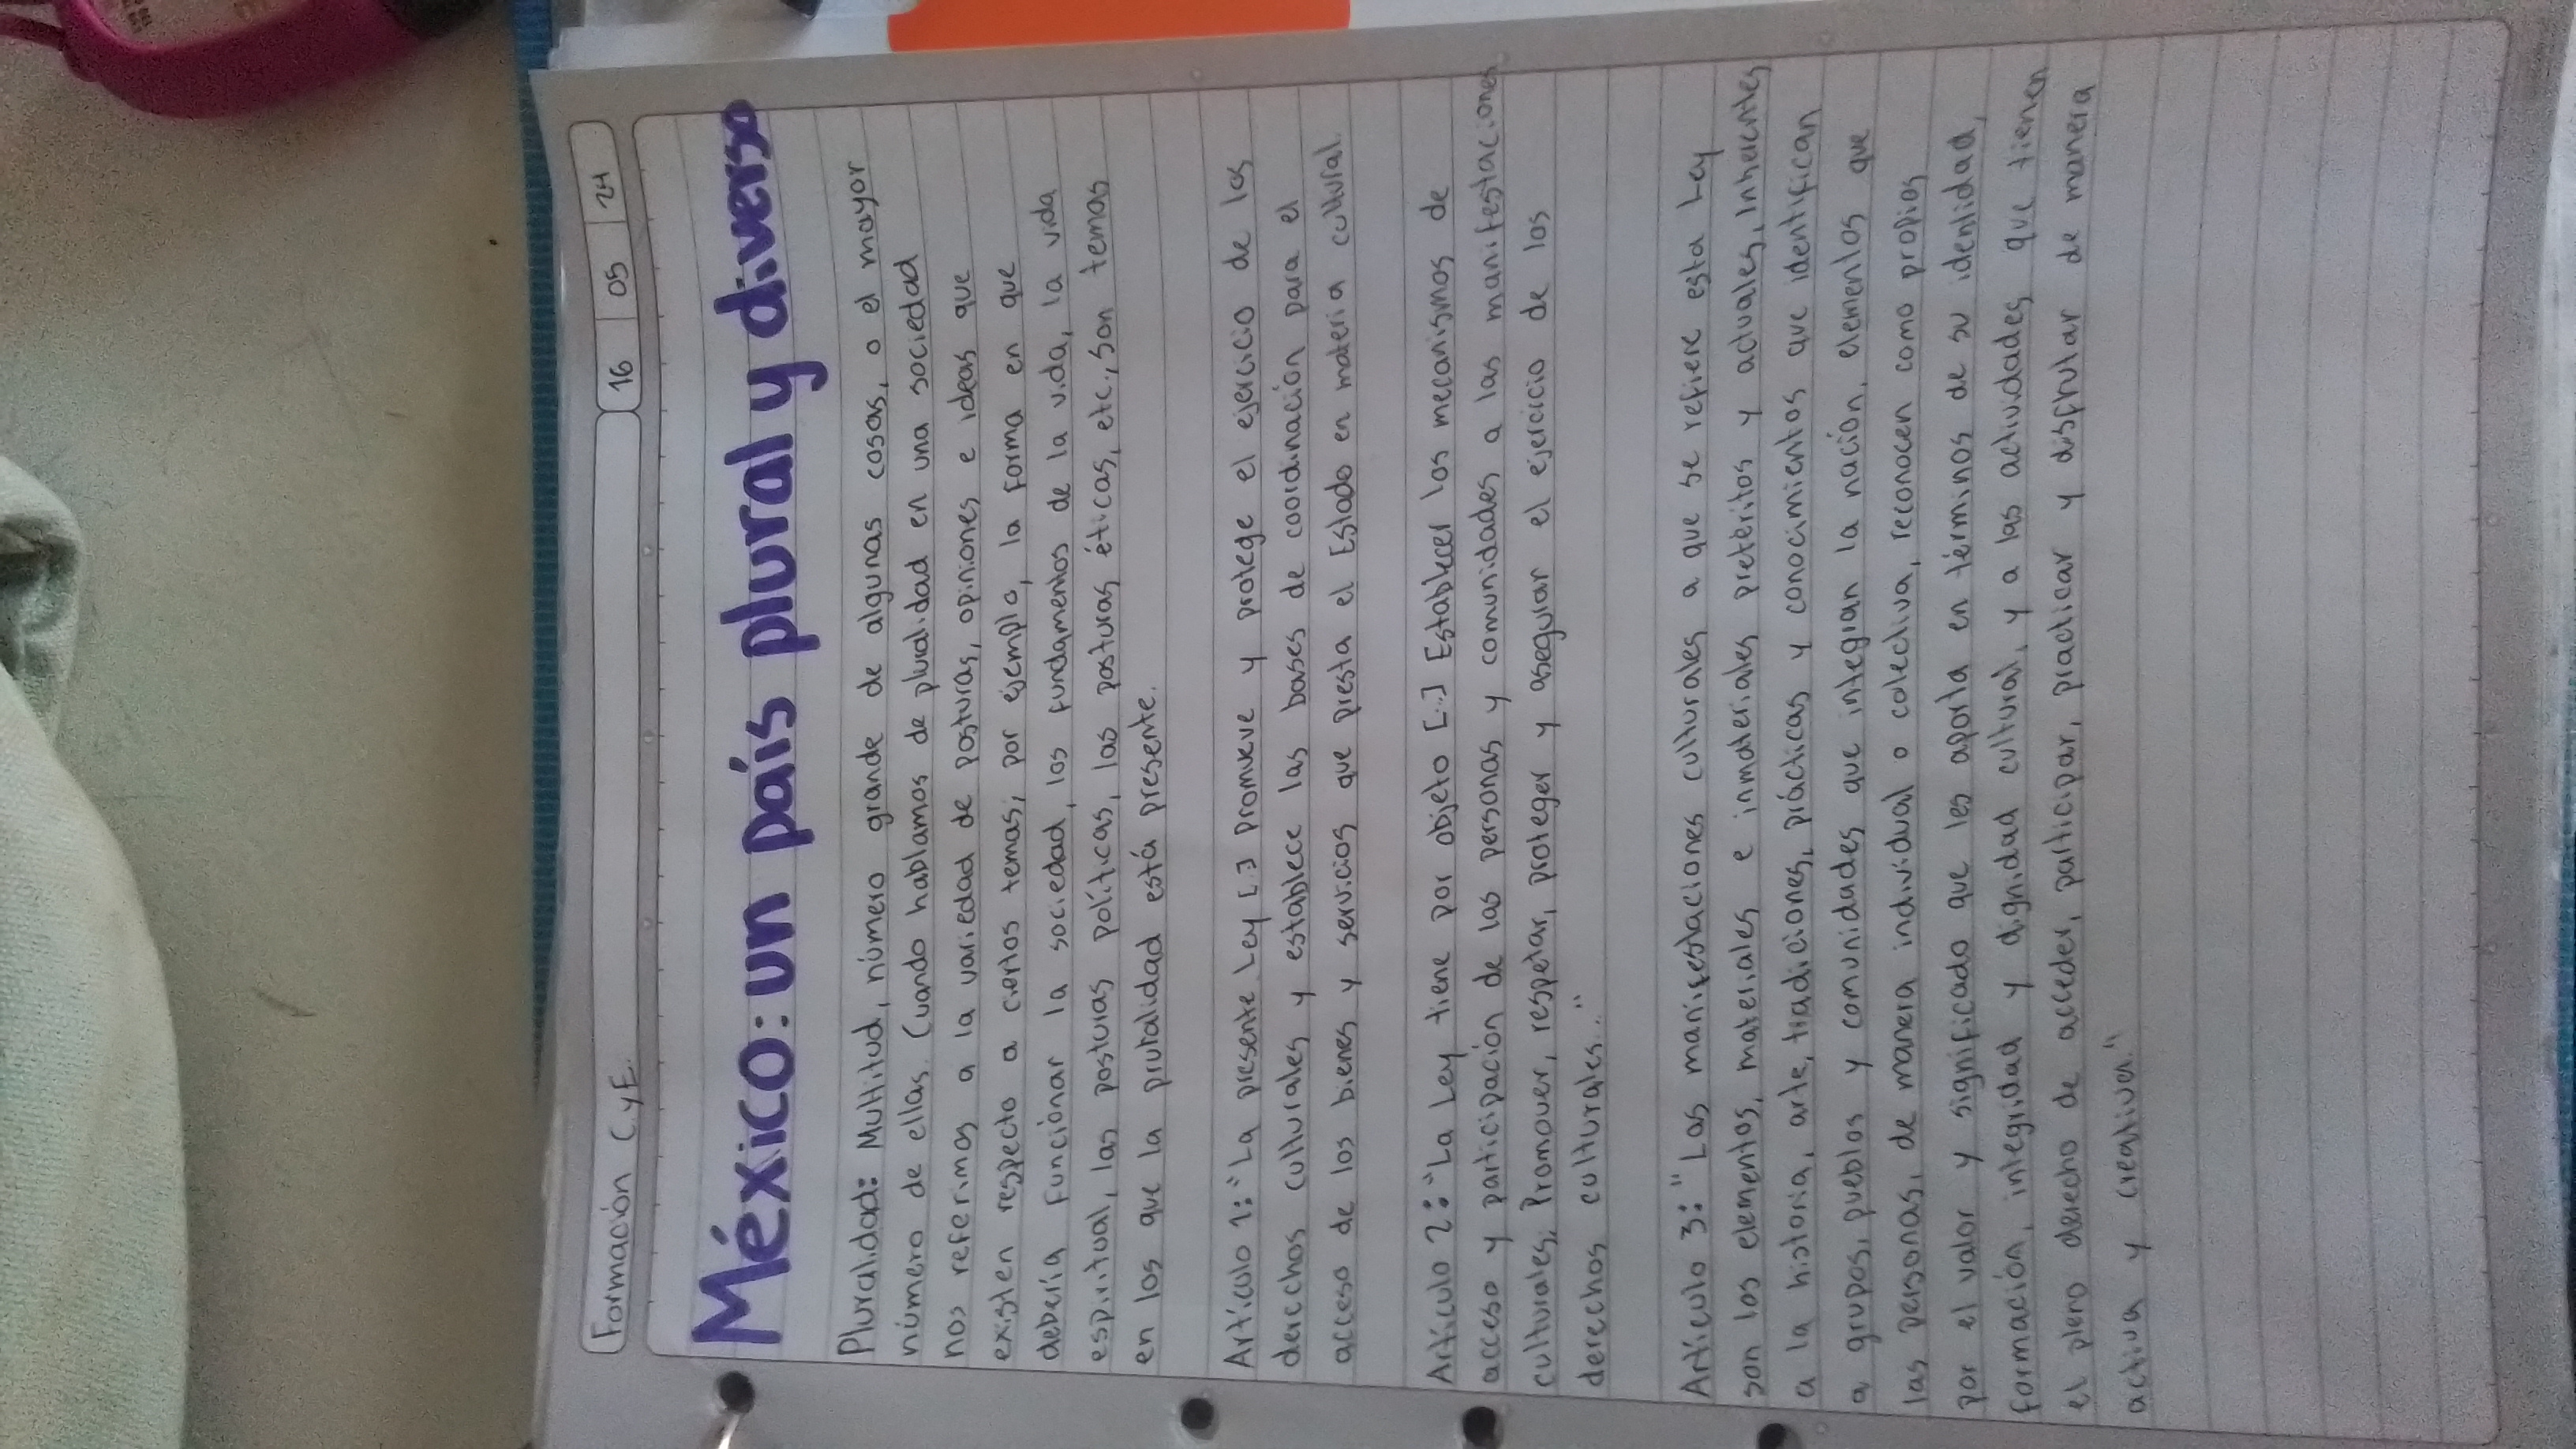 Formación C y E.
16 05 24
México: un país plural y diverso
Pluralidad: Multitud, número grande de algunas cosas, o el mayor
número de ellas. Cuando hablamos de pluralidad en una sociedad
nos referimos a la variedad de posturas, opiniones e ideas que
existen respecto a ciertos temas; por ejemplo, la forma en que
debería funcionar la sociedad, los fundamentos de la vida, la vida
espiritual, las posturas políticas, las posturas éticas, etc., son temas
en los que la prutalidad está presente.
Artículo 1: "La presente Ley [..] promueve y protege el ejercicio de los
derechos culturales y establece las bases de coordinación para el
acceso de los bienes y servicios que presta el Estado en materia cultural.
Artículo 2: "La Ley tiene por objeto [..] Establecer los mecanismos de
acceso y participación de las personas y comunidades a las manifestaciones
culturales; Promover, respetar, proteger y asegurar el ejercicio de los
derechos culturales..."
Artículo 3: "Las manifestaciones culturales a que se refiere esta Ley
son los elementos, materiales e inmateriales pretéritos y actuales, inherentes
a la historia, arte, tradiciones, prácticas y conocimientos que identifican
a grupos, pueblos y comunidades que integran la nación, elementos que
las personas, de manera individual o colectiva, reconocen como propios
por el valor y significado que les aporta en términos de su identidad,
formación, integridad y dignidad cultural, y a las actividades que tienen
el pleno derecho de acceder, participar, practicar y disfrutar de manera
activa y creativa."